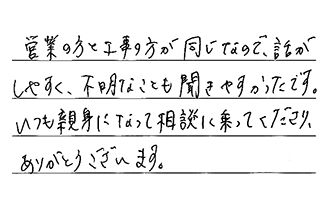 営業の方と工事の方が同じなので、話が
しやすく、不明なことも聞きやすかったです。
いつも親身になって相談に乗ってくださり、
ありがとうございます。